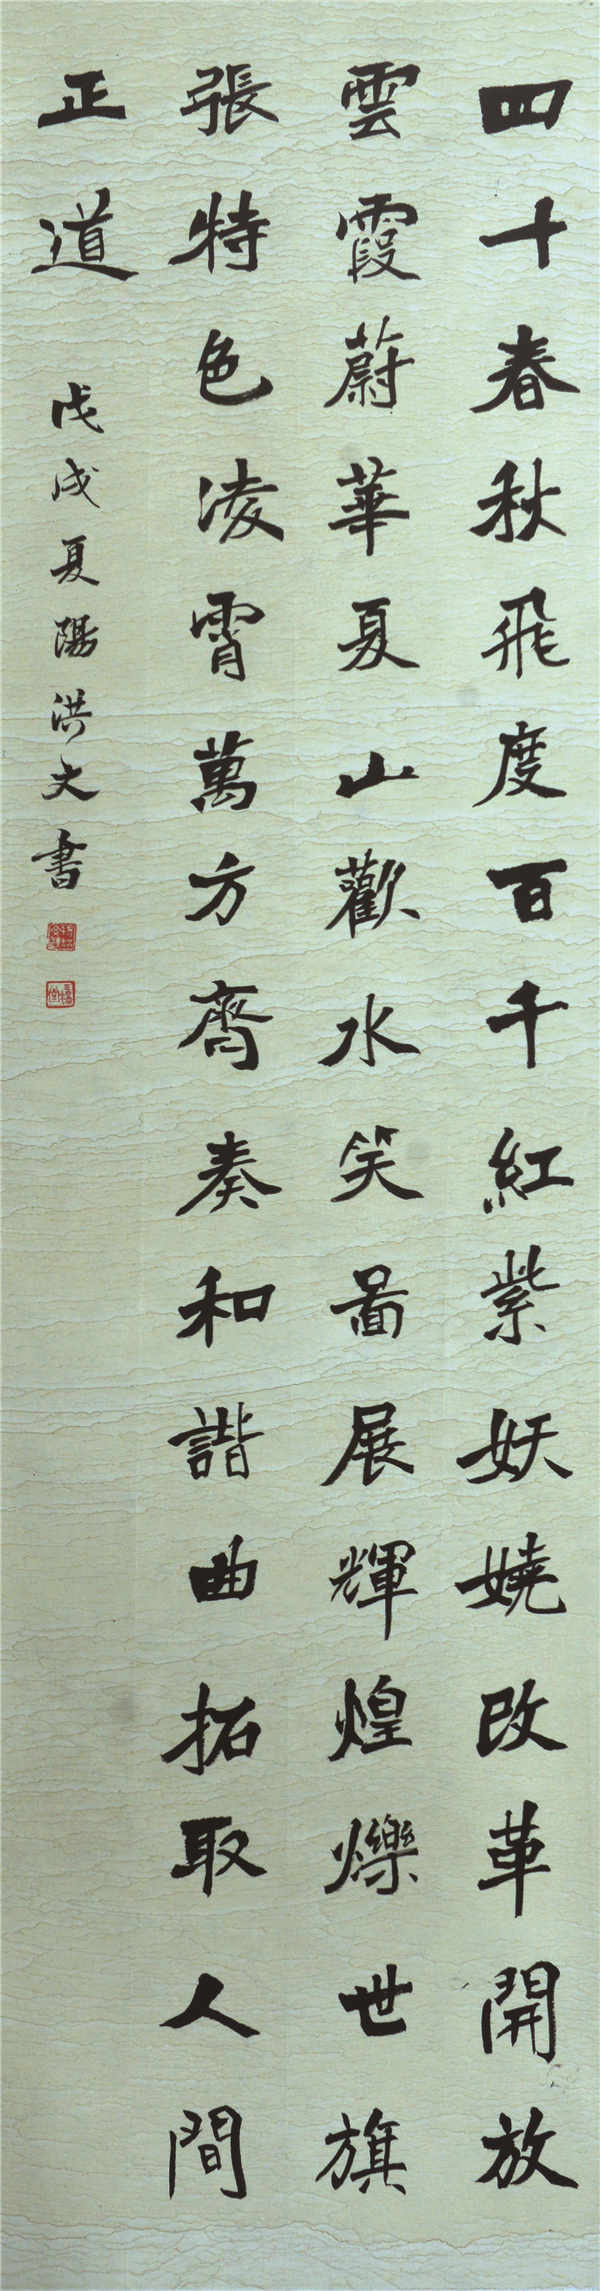 四十春秋飛度百千紅紫妖嬈改革開放
雲霞蔚華夏山歡水笑圖展輝煌爍世旗
張特色凌霄萬方齊奏和諧曲拓取人間
正道
戊戌夏陽洪文書